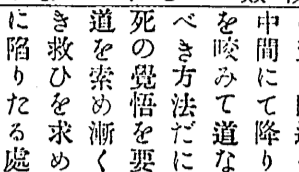 中間にて降り
を咬みて道な
べき方法だに
死の覺悟を要
道を索め漸く
き救ひを求め
に陷りたる處